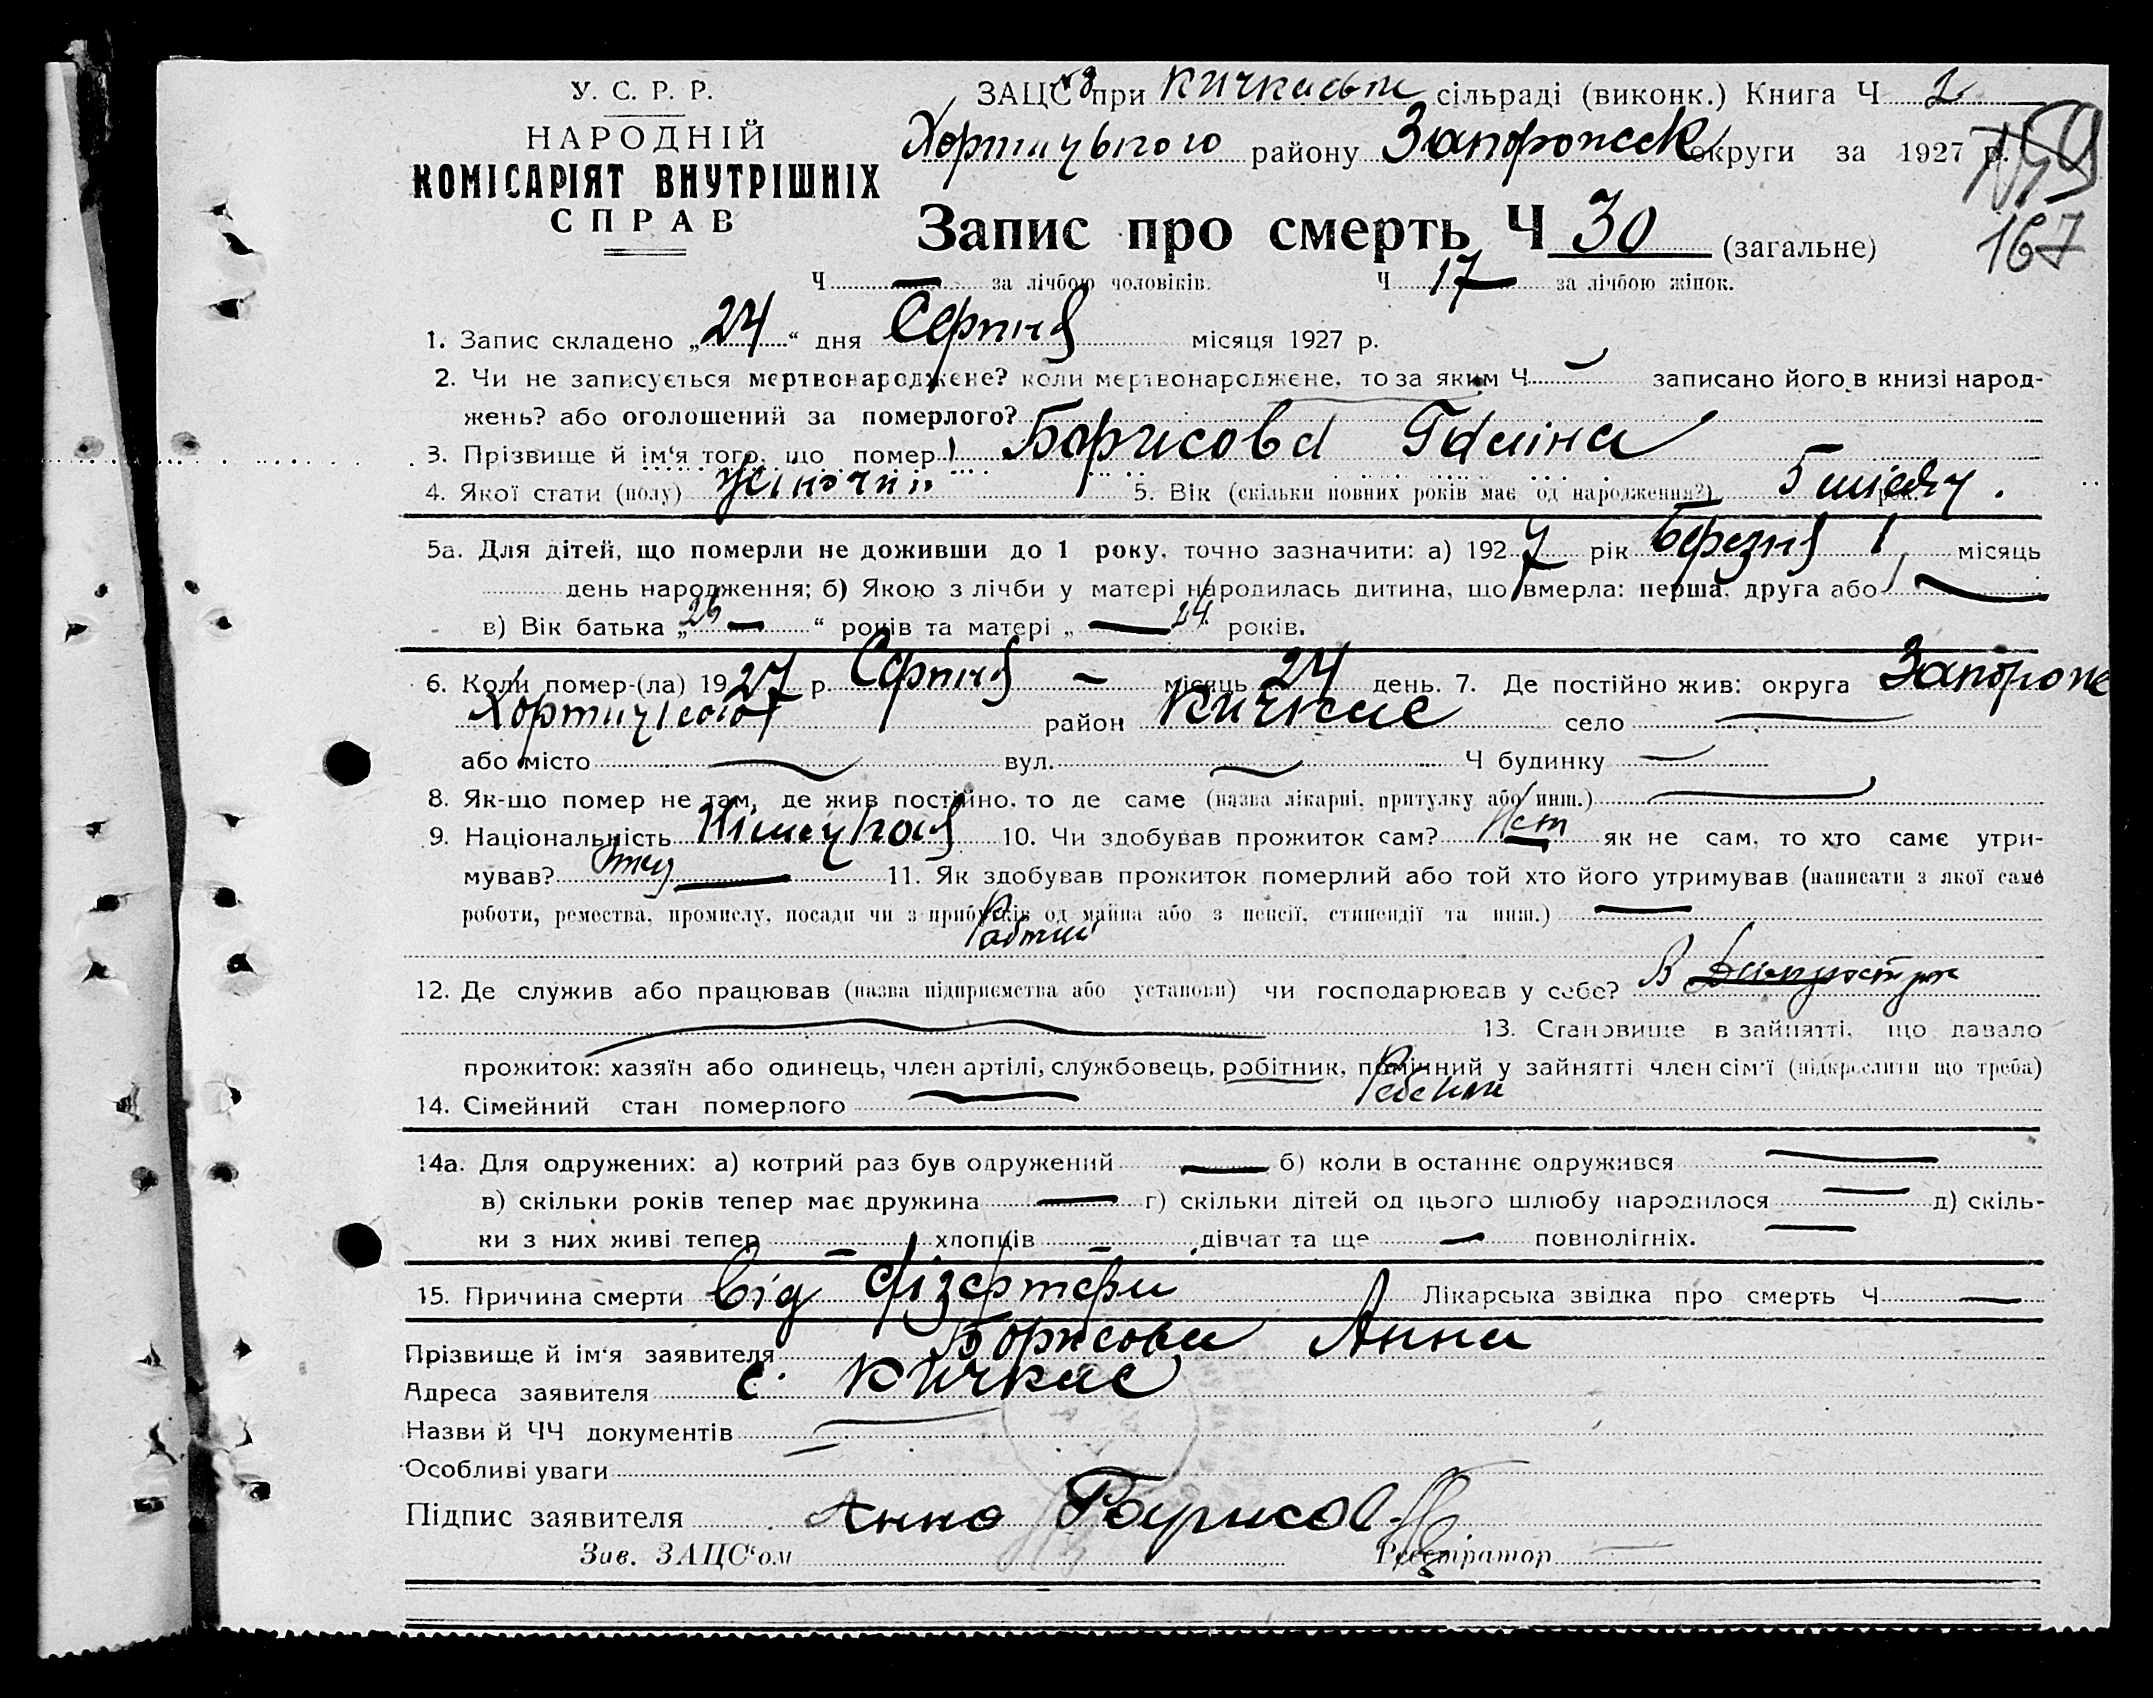 У. С. Р. Р.
НАРОДНІЙ
КОМІСАРІЯТ ВНУТРІШНІХ
СПРАВ
ЗАЦС при Кичкаськ сільраді (виконк.) Книга Ч 2
Хортицького району Запорожск округи за 1927 р.
167
Запис про смерть Ч 30 (загальне)
Ч — за лічбою чоловіків. Ч 17 за лічбою жінок.
1. Запис складено „24“ дня Серпня місяця 1927 р.
2. Чи не записується мертвонароджене? коли мертвонароджене, то за яким Ч — записано його в книзі народ-
жень? або оголошений за померлого?
3. Прізвище й ім'я того, що помер Борисова Галіна
4. Якої стати (полу) жіночий 5. Вік (скільки повних років має од народження?) 5 місяц.
5а. Для дітей, що померли не доживши до 1 року, точно зазначити: а) 1927 рік Березня 1 місяць
день народження; б) Якою з лічби у матері народилась дитина, що вмерла: перша, друга або —
в) Вік батька „26“ років та матері „— 24 років.
6. Коли помер-(ла) 1927 р. Серпня — місяць 24 день. 7. Де постійно жив: округа Запорож
район Кичкас село —
або місто — вул. — Ч будинку —
8. Як-що помер не там, де жив постійно, то де саме (назва лікарні, притулку або инш.) —
9. Національність 10. Чи здобував прожиток сам? Нет як не сам, то хто саме утри-
мував? отец — 11. Як здобував прожиток померлий або той хто його утримував (написати з якої саме
роботи, ремества, промислу, посади чи з прибутків од майна або з пенсії, стипендії та инш.) —
12. Де служив або працював (назва підприємства або установи) чи господарював у себе? В
— 13. Становище в зайнятті, що давало
прожиток: хазяїн або одинець, член артілі, службовець, робітник, помічний у зайнятті член сім'ї (підкреслити що треба)
14. Сімейний стан померлого — Ребенок
14а. Для одружених: а) котрий раз був одружений — б) коли в останнє одружився —
в) скільки років тепер має дружина — г) скільки дітей од цього шлюбу народилося — д) скіль-
ки з них живі тепер — хлопців — дівчат та ще — повнолітніх. —
15. Причина смерти Від дізертери Лікарська звідка про смерть Ч —
Прізвище й ім'я заявителя Борисова Анна
Адреса заявителя с. Кичкас
Назви й ЧЧ документів —
Особливі уваги
Підпис заявителя Анна Борисов
Зав. ЗАЦС'ом Реєстратор